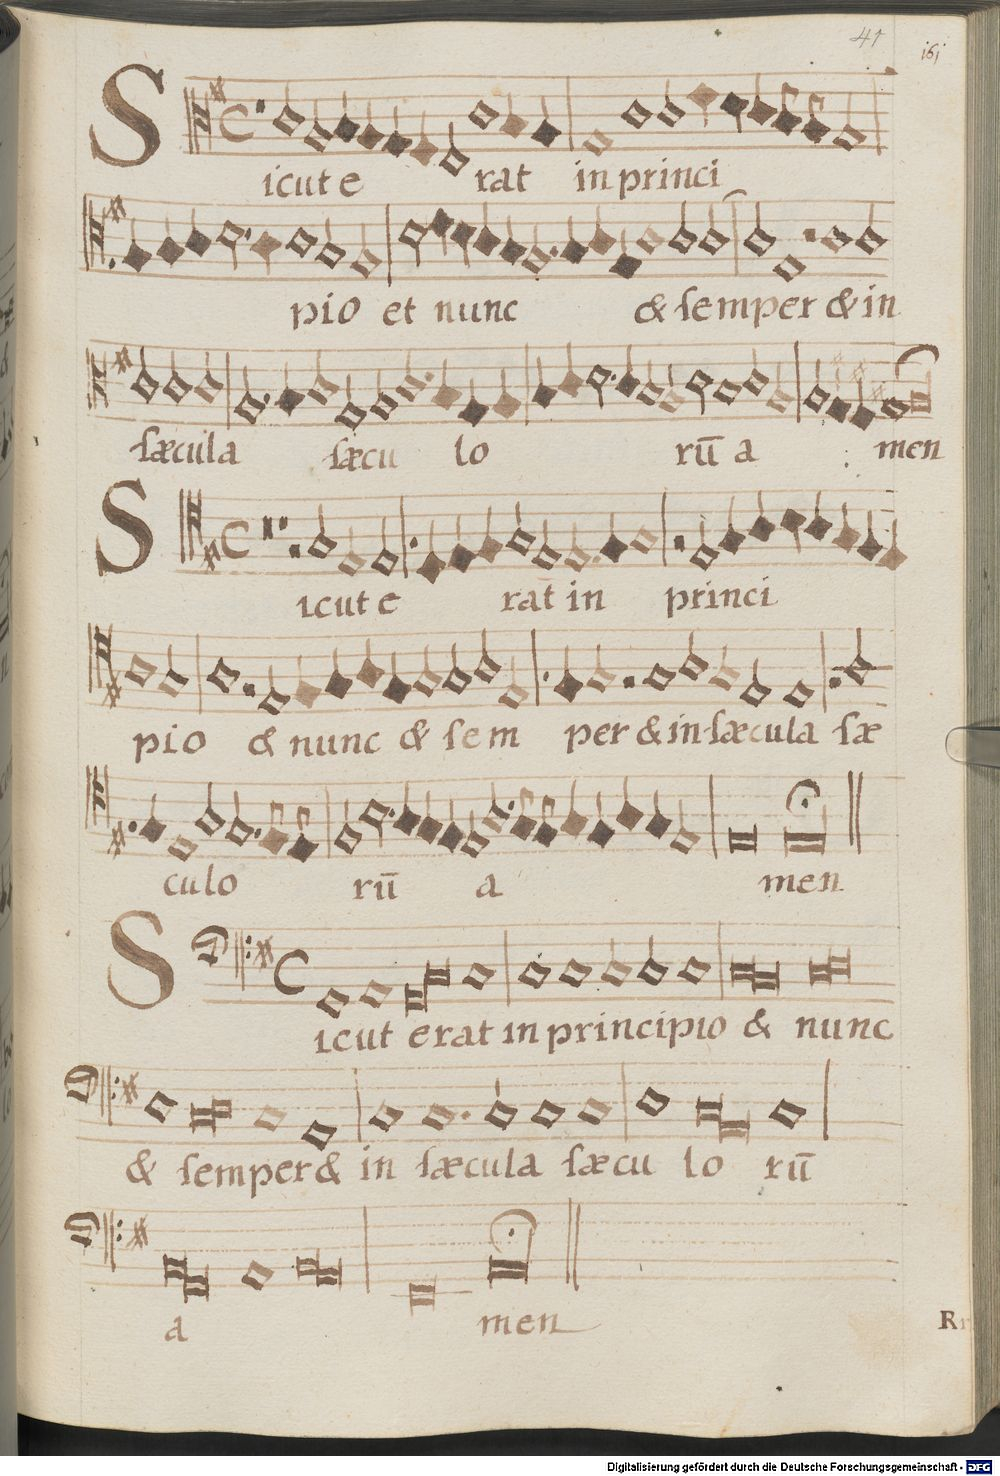 41 i6j
Sicut e rat in princi
pio et nunc & semper & in
sæcula sæcu lo rū a men
Sicut e rat in princi
pio & nunc & sem per & in sæcula sæ
culo rū a men
Sicut erat in principio & nunc
& semper & in sæcula sæcu lo rū
a men
Digitalisierung gefördert durch die Deutsche Forschungsgemeinschaft - DFG